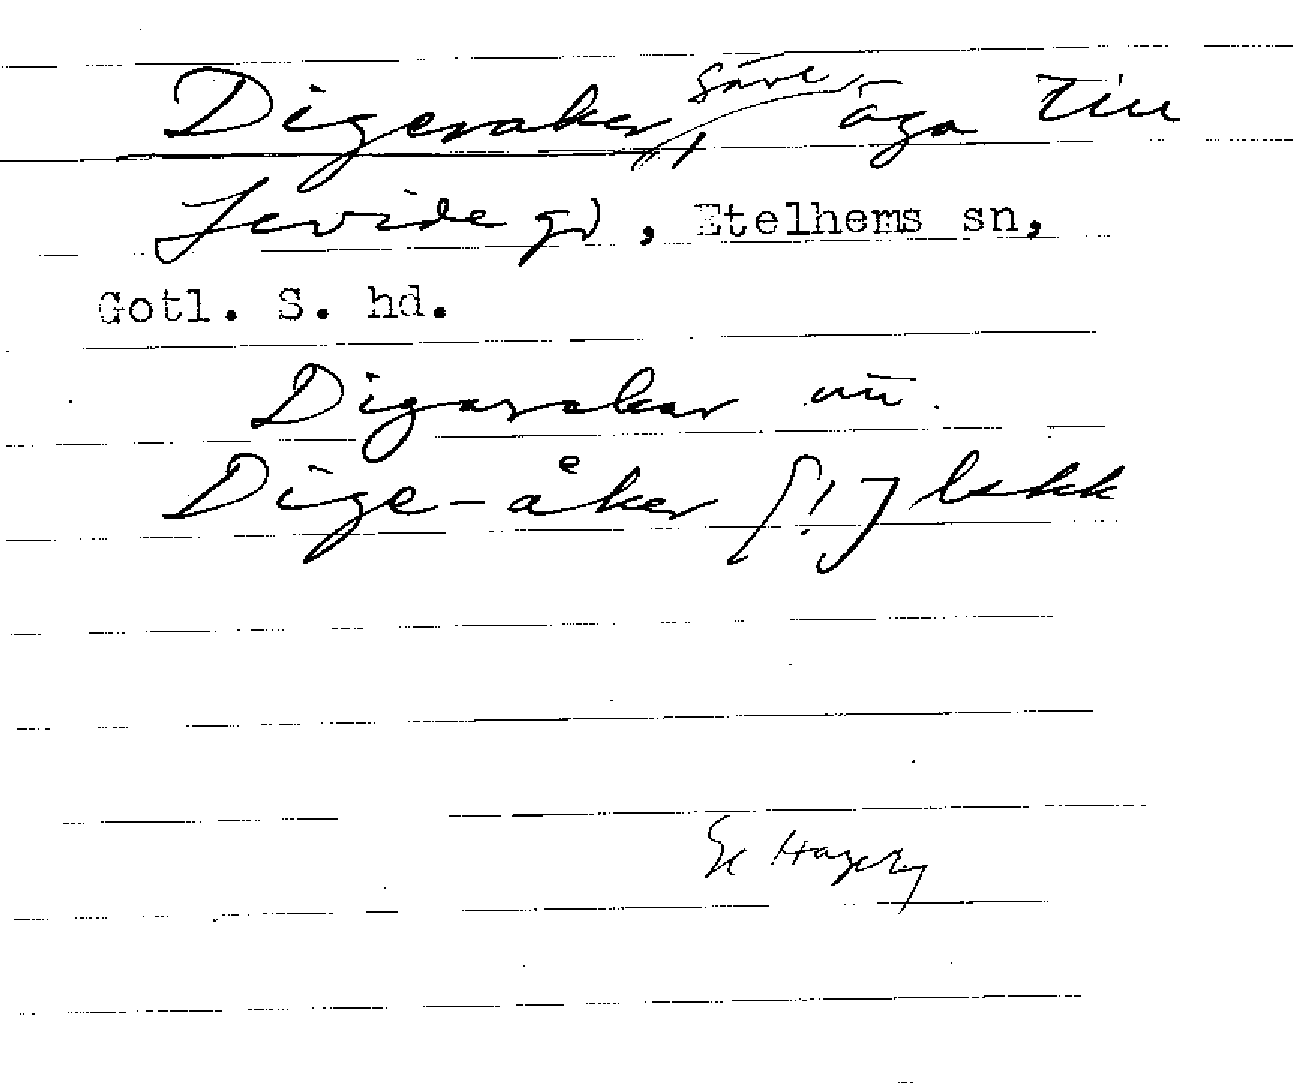 Digeraker Säve äga till
Jevide gd, Etelhems sn,
Gotl. S. hd.
Digerakar
Dige-åker [!]